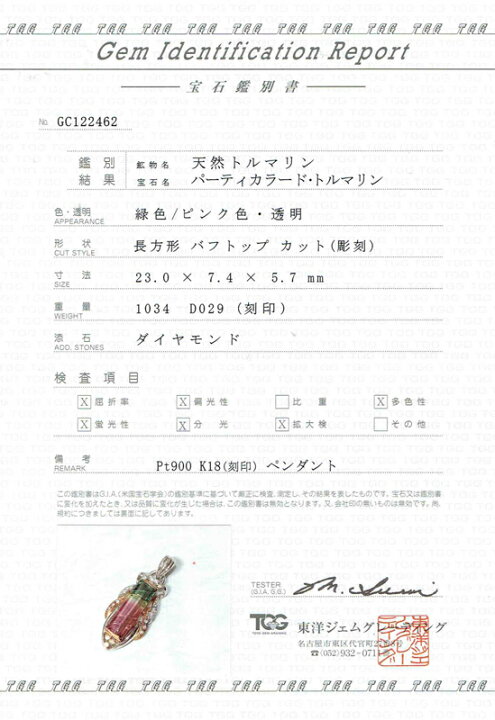 Gem Identification Report
宝石鑑別書
No. GC122462
鑑別 鉱物名 天然トルマリン
結果 宝石名 パーティカラード・トルマリン
色・透明 APPEARANCE 緑色/ピンク色・透明
形状 CUT STYLE 長方形 バフトップ カット(彫刻)
寸法 SIZE 23.0 × 7.4 × 5.7 mm
重量 WEIGHT 1034 D029 (刻印)
添石 ADD. STONES ダイヤモンド
検査項目
X 屈折率 X 偏光性 比重 X 多色性
X 蛍光性 X 分光 X 拡大検 その他
備考 REMARK Pt900 K18(刻印) ペンダント
この鑑別書はG.I.A.(米国宝石学会)の鑑別基準に基づて厳正に検査、測定し、その結果を表したものです。宝石又は鑑別書
に変化を加えたとき、又は品質に変化が生じた場合は、この鑑別書は無効となります。又、会社印の無いものは無効です。尚、
規約につきましては裏面に記してあります。
TESTER
(G.I.A. G.G.)
TGG 東洋ジェムグレーディング
名古屋市東区代官町
☎(052)932-071